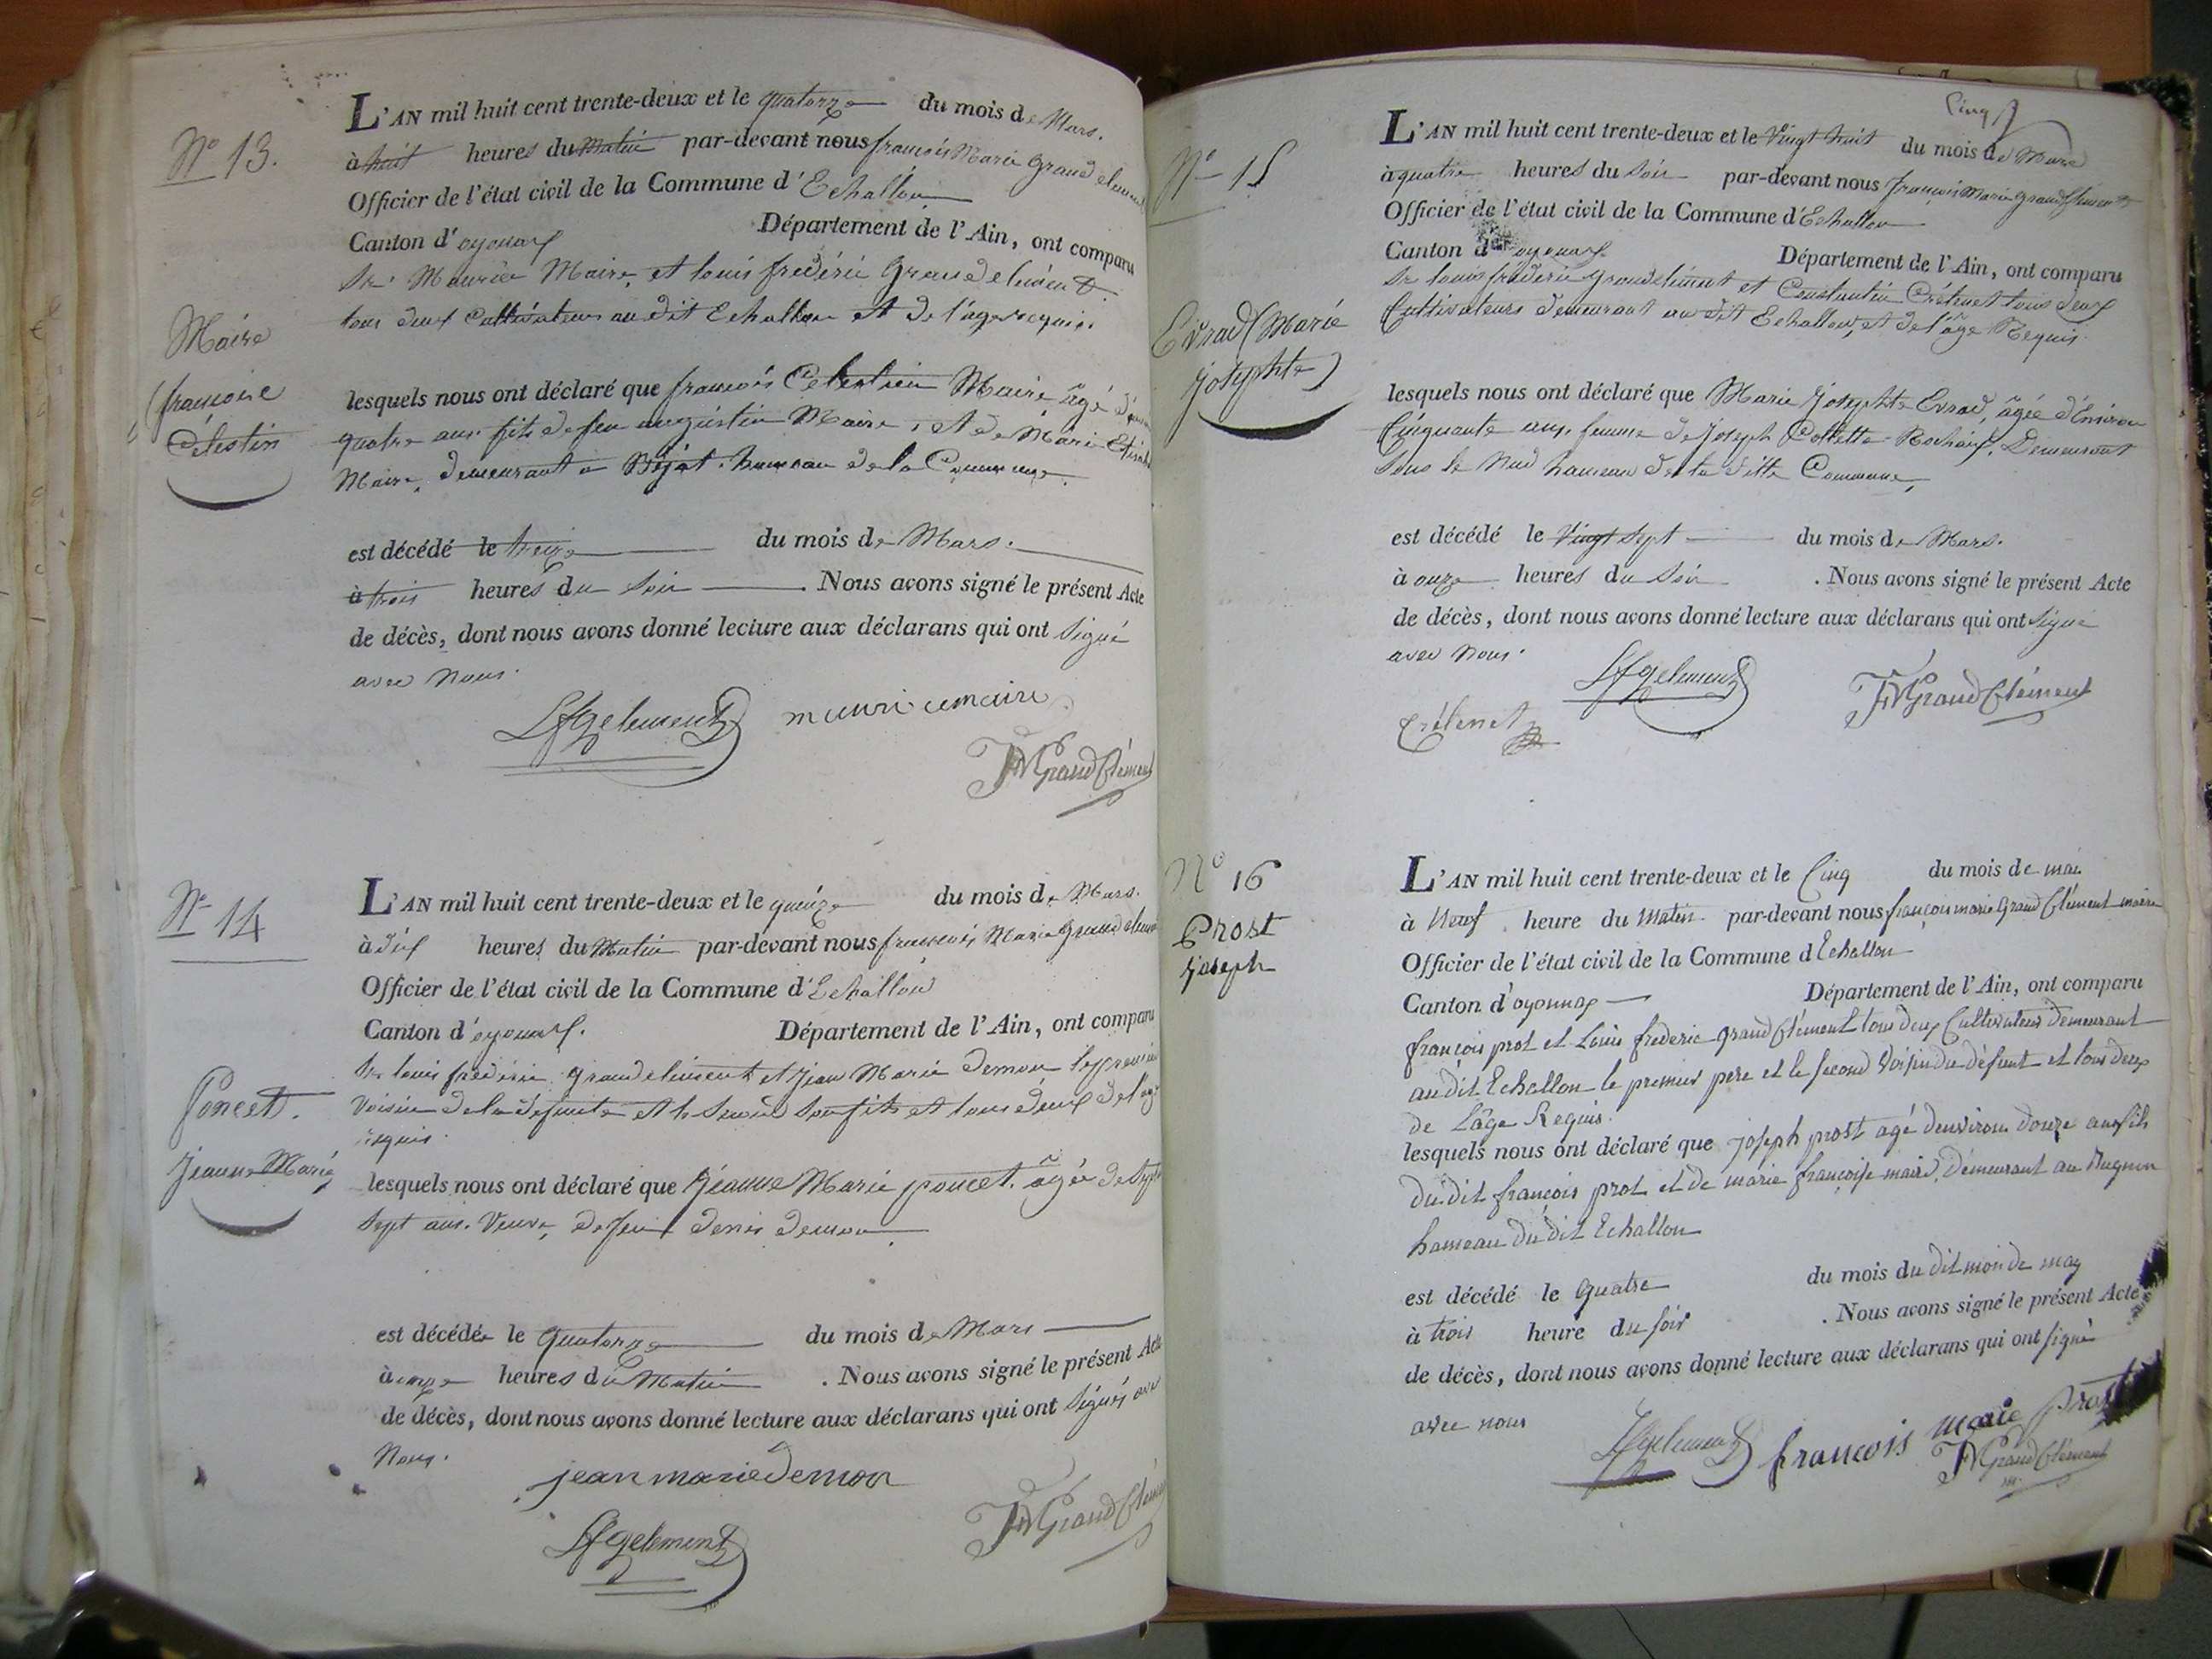 N° 13.
Maire
(françois
Célestin
L'AN mil huit cent trente-deux et le quatorze du mois de Mars.
à huit heures du Matin par-devant nous françois Marie Grandclement
Officier de l'état civil de la Commune d'Echallon
Canton d'oyonnax Département de l'Ain, ont comparu
Sr. Maurice Maire, et louis frédéric Grandclément
tous deux Cultivateurs au dit Echallon et de l'age requis.
lesquels nous ont déclaré que françois Célestin Maire âgé
quatre ans fils de feu augustin Maire, et de Marie
Maire, demeurant a hameau de la Commune.
est décédé le treize du mois de Mars.
à trois heures du Soir. Nous avons signé le présent Acte
de décès, dont nous avons donné lecture aux déclarans qui ont Signé
avec Nous.
Lfgclement mauricemaire
FMGrandClément
N° 14
Poncet.
Jeanne Marie
L'AN mil huit cent trente-deux et le quinze du mois de Mars.
à dix heures du Matin par-devant nous françois Marie grandclement
Officier de l'état civil de la Commune d'Echallon
Canton d'oyonnax. Département de l'Ain, ont comparu
Sr. louis frédéric grandclement et Jean Marie demon le premier
Voisin de la defunte et le Second Son fils et tous deux de l'age
requis.
lesquels nous ont déclaré que Jeanne Marie poncet. âgée de
Sept ans. Veuve, de feu denis demon
est décédée le quatorze du mois de Mars
à onze heures du Matin. Nous avons signé le présent Acte
de décès, dont nous avons donné lecture aux déclarans qui ont Signés avec
Nous.
jean marie demon
Lfgclement FMGrandClément
Cinq
N° 15
Evrad (Marie
josephte)
L'AN mil huit cent trente-deux et le Vingt huit du mois de Mars
à quatre heures du Soir par-devant nous françois Marie grandClement
Officier de l'état civil de la Commune d'Echallon
Canton d'oyonnax Département de l'Ain, ont comparu
Sr louis frédéric grandclément et Constantin Crétenet tous deux
Cultivateurs demeurant au dit Echallon, et de l'âge Requis.
lesquels nous ont déclaré que Marie Josephte Evrad, âgée d'Environ
Cinquante ans. femme de Joseph Collette Demeurant
Sous le Nud hameau de la ditte Commune,
est décédé le Vingt Sept du mois de Mars.
à onze heures du Soir. Nous avons signé le présent Acte
de décès, dont nous avons donné lecture aux déclarans qui ont Signé
avec Nous.
Lfgclement FMGrandClément
Crétenet
N° 16
Prost
joseph
L'AN mil huit cent trente-deux et le Cinq du mois de mai
à Neuf heure du Matin par-devant nous françois marie GrandClément maire
Officier de l'état civil de la Commune d Echallon
Canton d'oyonnax Département de l'Ain, ont comparu
françois prot et Louis frederic grandClément tous deux Cultivateurs demeurant
au dit Echallon le premier pere et le second Voisin du défunt et tous deux
de L'âge Requis.
lesquels nous ont déclaré que joseph prost agé denviron douze ans fils
du dit françois prot et de marie françoise maire, demeurant au Mugnon
hameau du dit Echallon
est décédé le quatre du mois du dit moi de may
à trois heure du soir. Nous avons signé le présent Acte
de décès, dont nous avons donné lecture aux déclarans qui ont signé
avec nous
Lfgclement francois marie prost
FMGrandClément
m.